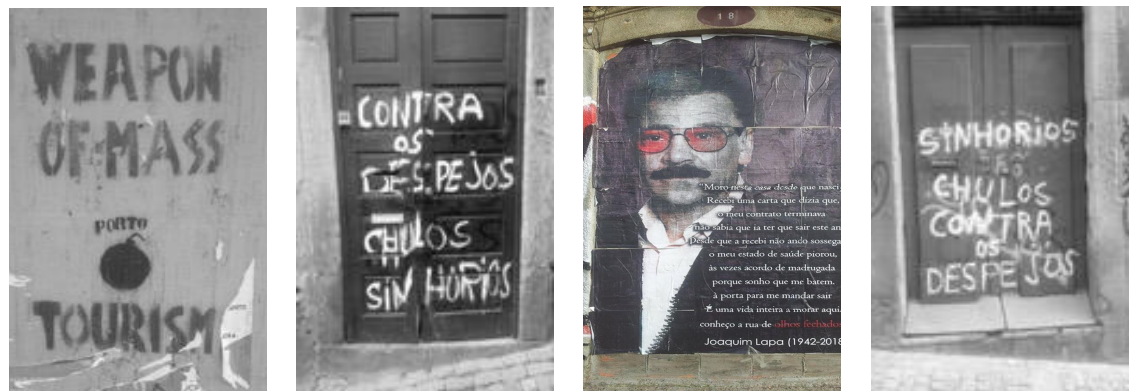 WEAPON
OF MASS
PORTO
TOURISM
CONTRA
OS
DESPEJOS
CHULOS
SINHORIOS
18
"Moro nesta casa desde que nasci
Recebi uma carta que dizia que,
o meu contrato terminava
não sabia que ia ter que sair este an
Desde que a recebi não ando sossega
o meu estado de saúde piorou,
às vezes acordo de madrugada
porque sonho que me batem.
à porta para me mandar sair
É uma vida inteira a morar aqui.
conheço a rua de olhos fechado
Joaquim Lapa (1942-2018
SINHORIOS
CHULOS
CONTRA
OS
DESPEJOS